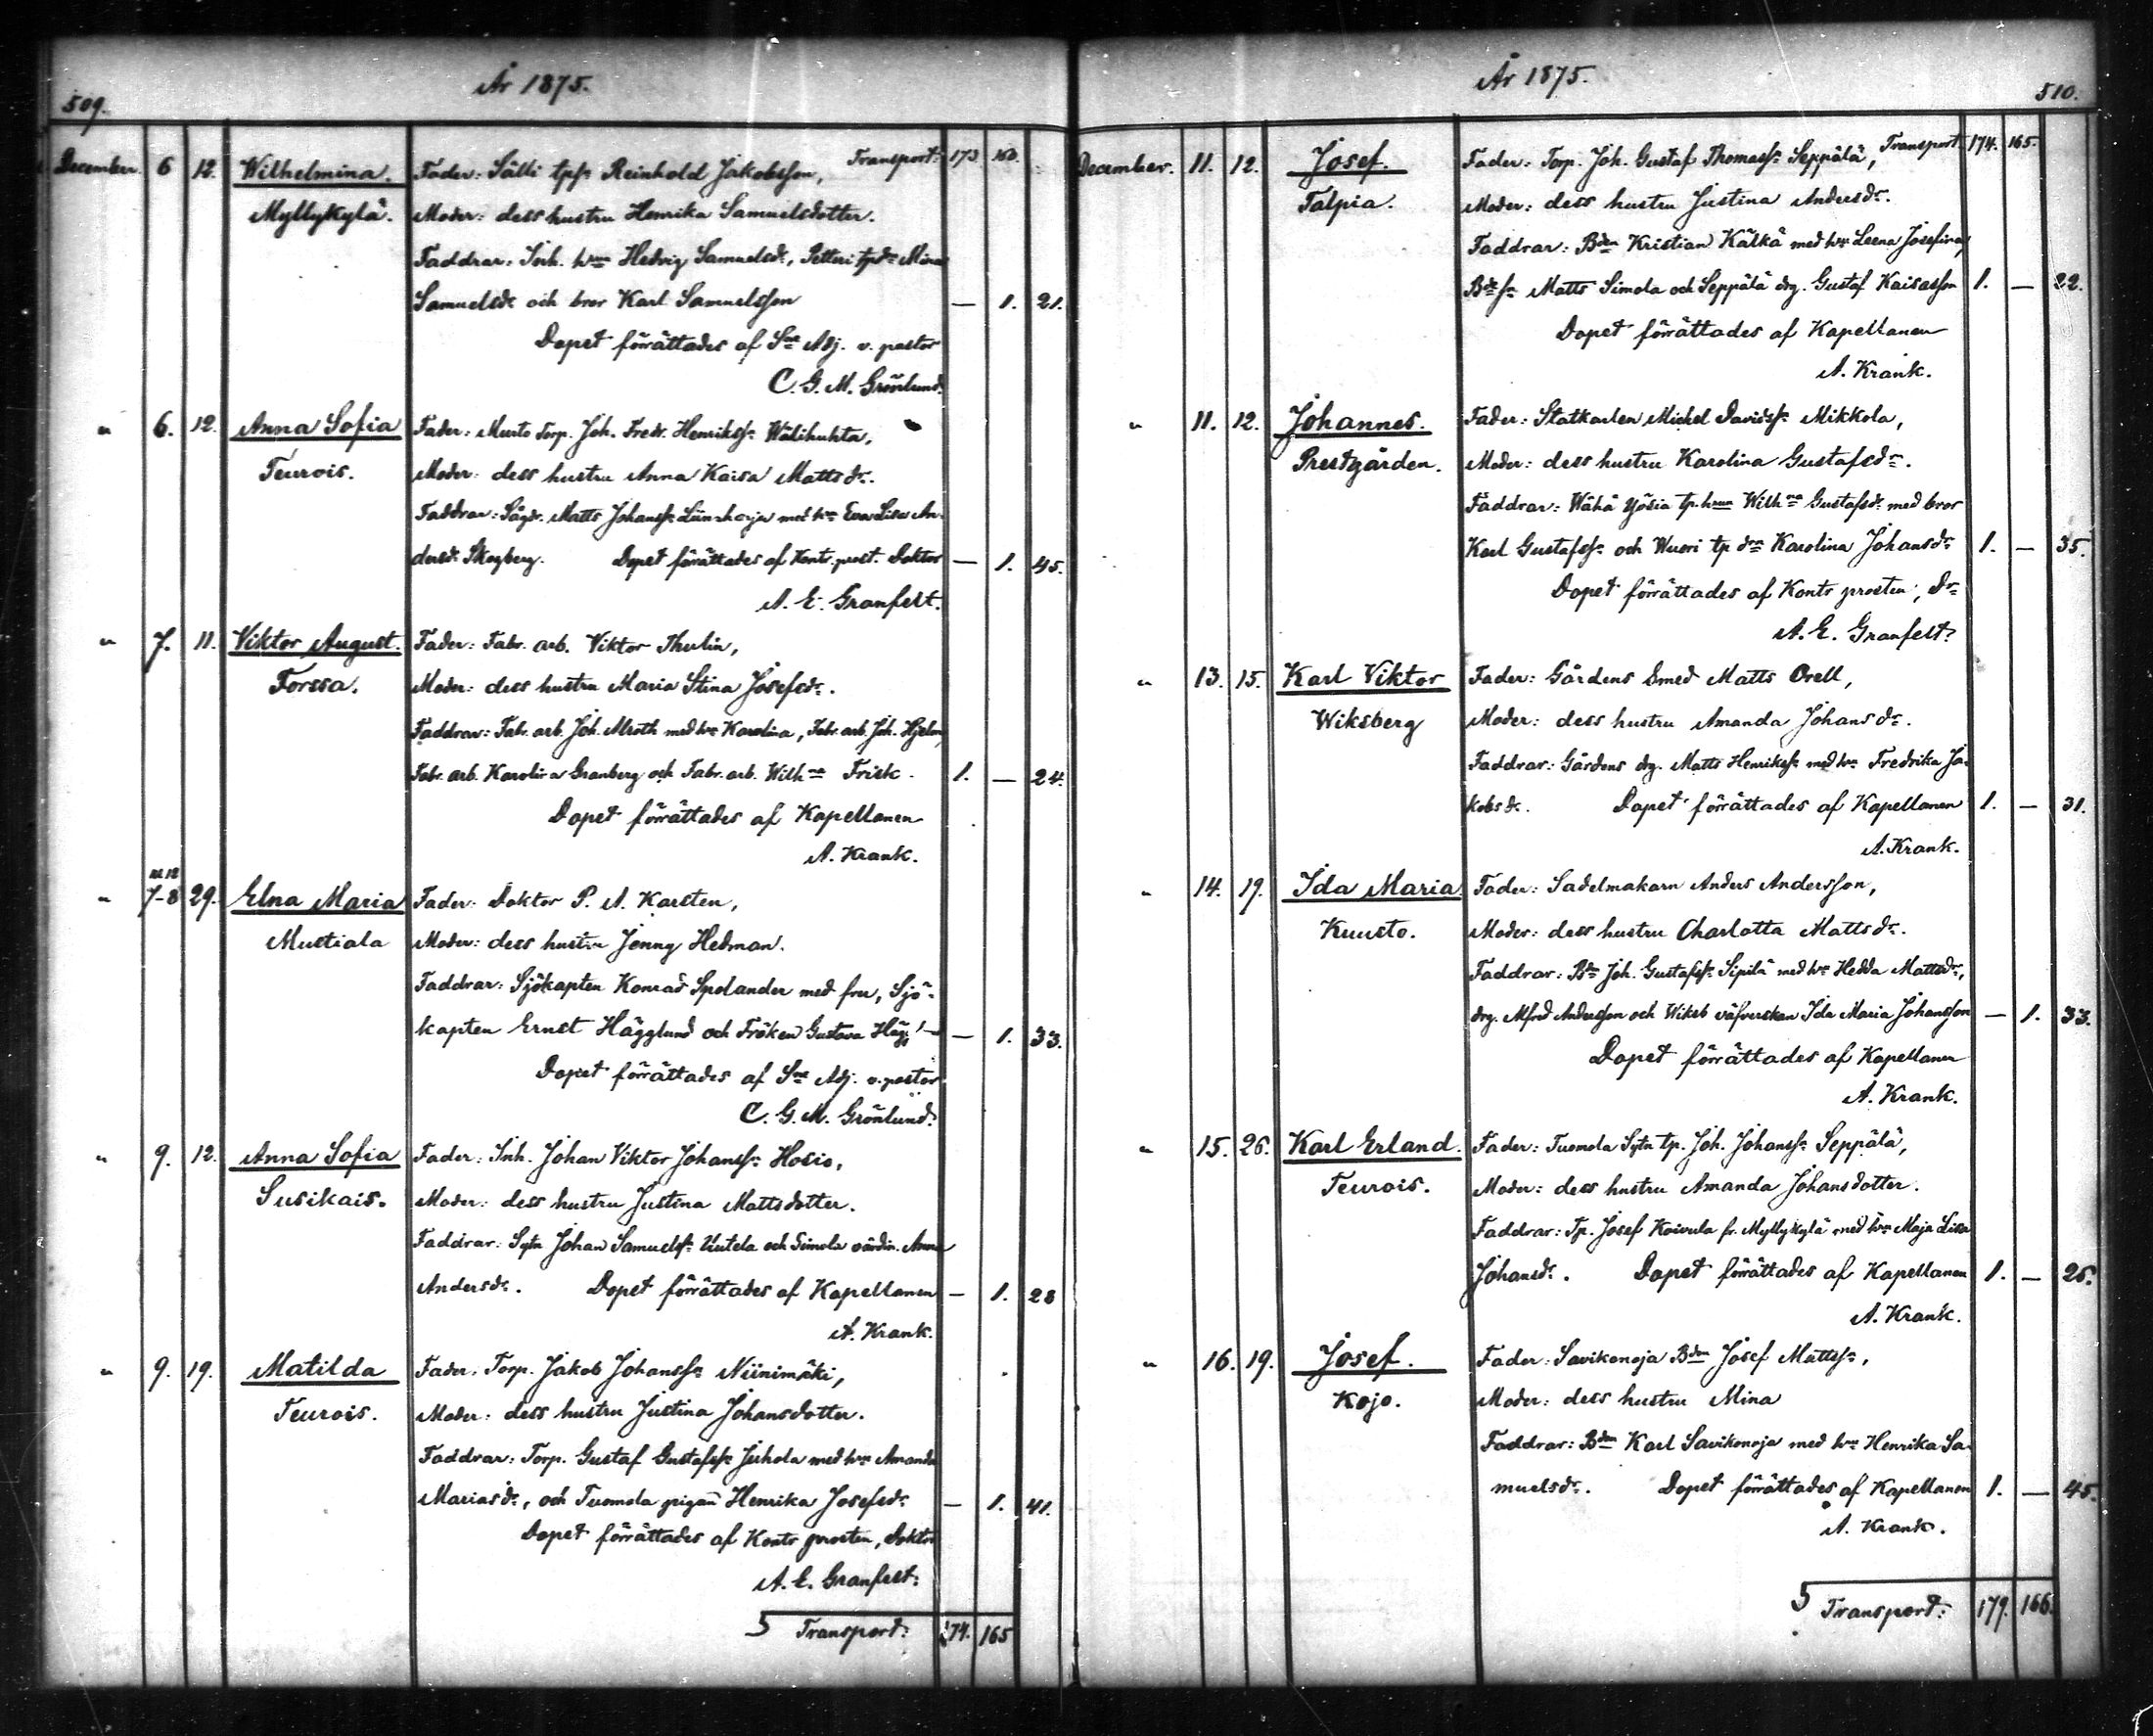 År 1875.
509.
December. 6 12. Wilhelmina. Fader: Sälli tpss Reinhold Jakobsson, Transport: 173 160.
Myllykylä. Moder: dess hustru Henrika Samuelsdotter.
Faddrar: Inh. hrun Hedvig Samuelsdr, Petteri tpdr Mina
Samuelsdr och bror Karl Samuelsson — 1. 21.
Dopet förrättades af Sne Adj. v. pastor
C. G. M. Grönlund.
" 6. 12. Anna Sofia Fader: Musto Torp. Joh. Fredr. Henrikssn Wälihuhta,
Teurois. Moder: dess hustru Anna Kaisa Mattsdr.
Faddrar: Sågdr. Matts Johanssn Liinaharja med hru Eva Lisa An-
dersdr Skogberg. Dopet förrättades af Kontr. prost. Doktor — 1. 45.
A. E. Granfelt.
" 7. 11. Viktor August. Fader: Fabr. arb. Viktor Thulin,
Forssa. Moder: dess hustru Maria Stina Josefsdr.
Faddrar: Fabr. arb. Joh. Alroth med hru Karolina, Fabr. arb. Joh. Hjelm,
Fabr. arb. Karolina Granberg och Fabr. arb. Wilhna Frisk. 1. — 24.
Dopet förrättades af Kapellanen
A. Krank.
kl 12
" 7-8 29. Elna Maria Fader: Doktor P. A. Karsten,
Mustiala Moder: dess hustru Jenny Hedman.
Faddrar: Sjökapten Konrad Spolander med fru, Sjö-
kapten Ernst Hägglund och Fröken Gustava Hägg — 1. 33.
Dopet förrättades af Sne Adj. v. pastor
C. G. M. Grönlund.
" 9. 12. Anna Sofia Fader: Inh. Johan Viktor Johanssn Hosio,
Susikais. Moder: dess hustru Justina Mattsdotter.
Faddrar: Sytn Johan Samuelssn Uutela och Simola värdin. Anna
Andersdr. Dopet förrättades af Kapellanen — 1. 28
A. Krank.
" 9. 19. Matilda Fader: Torp. Jakob Johanssn Niinimäki,
Teurois. Moder: dess hustru Justina Johansdotter.
Faddrar: Torp. Gustaf Gustafssn Juhola med hru Amanda
Mariasdr, och Tuomola pigan Henrika Josefsdr — 1. 41.
Dopet förrättades af Kontr prosten, Doktor
A. E. Granfelt.
5 Transport: 174. 165
År 1875.
510.
December. 11. 12. Josef. Fader: Torp. Joh. Gustaf Thomassn Seppälä, Transport: 174. 165.
Talpia. Moder: dess hustru Justina Andersdr.
Faddrar: Bden Kristian Kälkä med hru Leena Josefina,
Bdessn Matts Simola och Seppälä drg. Gustaf Kaisasson 1. — 22.
Dopet förrättades af Kapellanen
A. Krank.
" 11. 12. Johannes. Fader: Statkarlen Michel Davidssn Mikkola,
Prestgården. Moder: dess hustru Karolina Gustafsdr.
Faddrar: Wähä Yösiä tp. hrun Wilhna Gustafsdr med bror
Karl Gustafssn och Wuori tp drn Karolina Johansdr 1. — 35.
Dopet förrättades af Kontr prosten, Dr
A. E. Granfelt.
" 13. 15. Karl Viktor Fader: Gårdens Smed Matts Orell,
Wiksberg Moder: dess hustru Amanda Johansdr.
Faddrar: Gårdens drg. Matts Henrikssn med hru Fredrika Ja-
kobsdr. Dopet förrättades af Kapellanen 1. — 31.
A. Krank.
" 14. 19. Ida Maria Fader: Sadelmakarn Anders Andersson,
Kuusto. Moder: dess hustru Charlotta Mattsdr.
Faddrar: Bdn Joh. Gustafssn Sipilä med hru Hedda Mattsdr,
drg. Alfred Andersson och Wiksb väfverskan Ida Maria Johansson — 1. 33.
Dopet förrättades af Kapellanen
A. Krank.
" 15. 26. Karl Erland. Fader: Tuomola Sytn tp. Joh. Johanssn Seppälä,
Teurois. Moder: dess hustru Amanda Johansdotter.
Faddrar: Tp. Josef Koivula fr. Myllykylä med hru Maja Lisa
Johansdr. Dopet förrättades af Kapellanen 1. — 25.
A. Krank.
" 16. 19. Josef. Fader: Savikonoja Bden Josef Mattssn,
Kojo. Moder: dess hustru Mina
Faddrar: Bden Karl Savikonoja med hru Henrika Sa-
muelsdr. Dopet förrättades af Kapellanen 1. — 45.
A. Krank.
5 Transport: 179. 166.